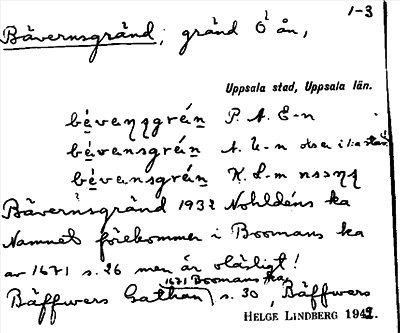 1-3
Bävernsgränd; gränd Ö ån,
Uppsala stad, Uppsala län.
bévenngrén P. A. E-n
bévansgrén A. U-n
bévansgrén K. L-m
Bävernsgränd 1932 Nohldéns ka
Namnet förekommer i Boomans ka
av 1671 s. 26 men är oläsligt!
1671 Boomans ka
Bäffwers Gathan s. 30, Bäffwers
HELGE LINDBERG 1942.